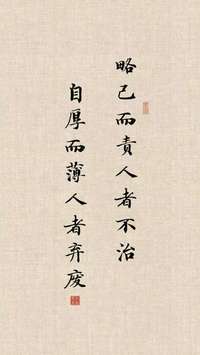 略己而責人者不治
自厚而薄人者弃废